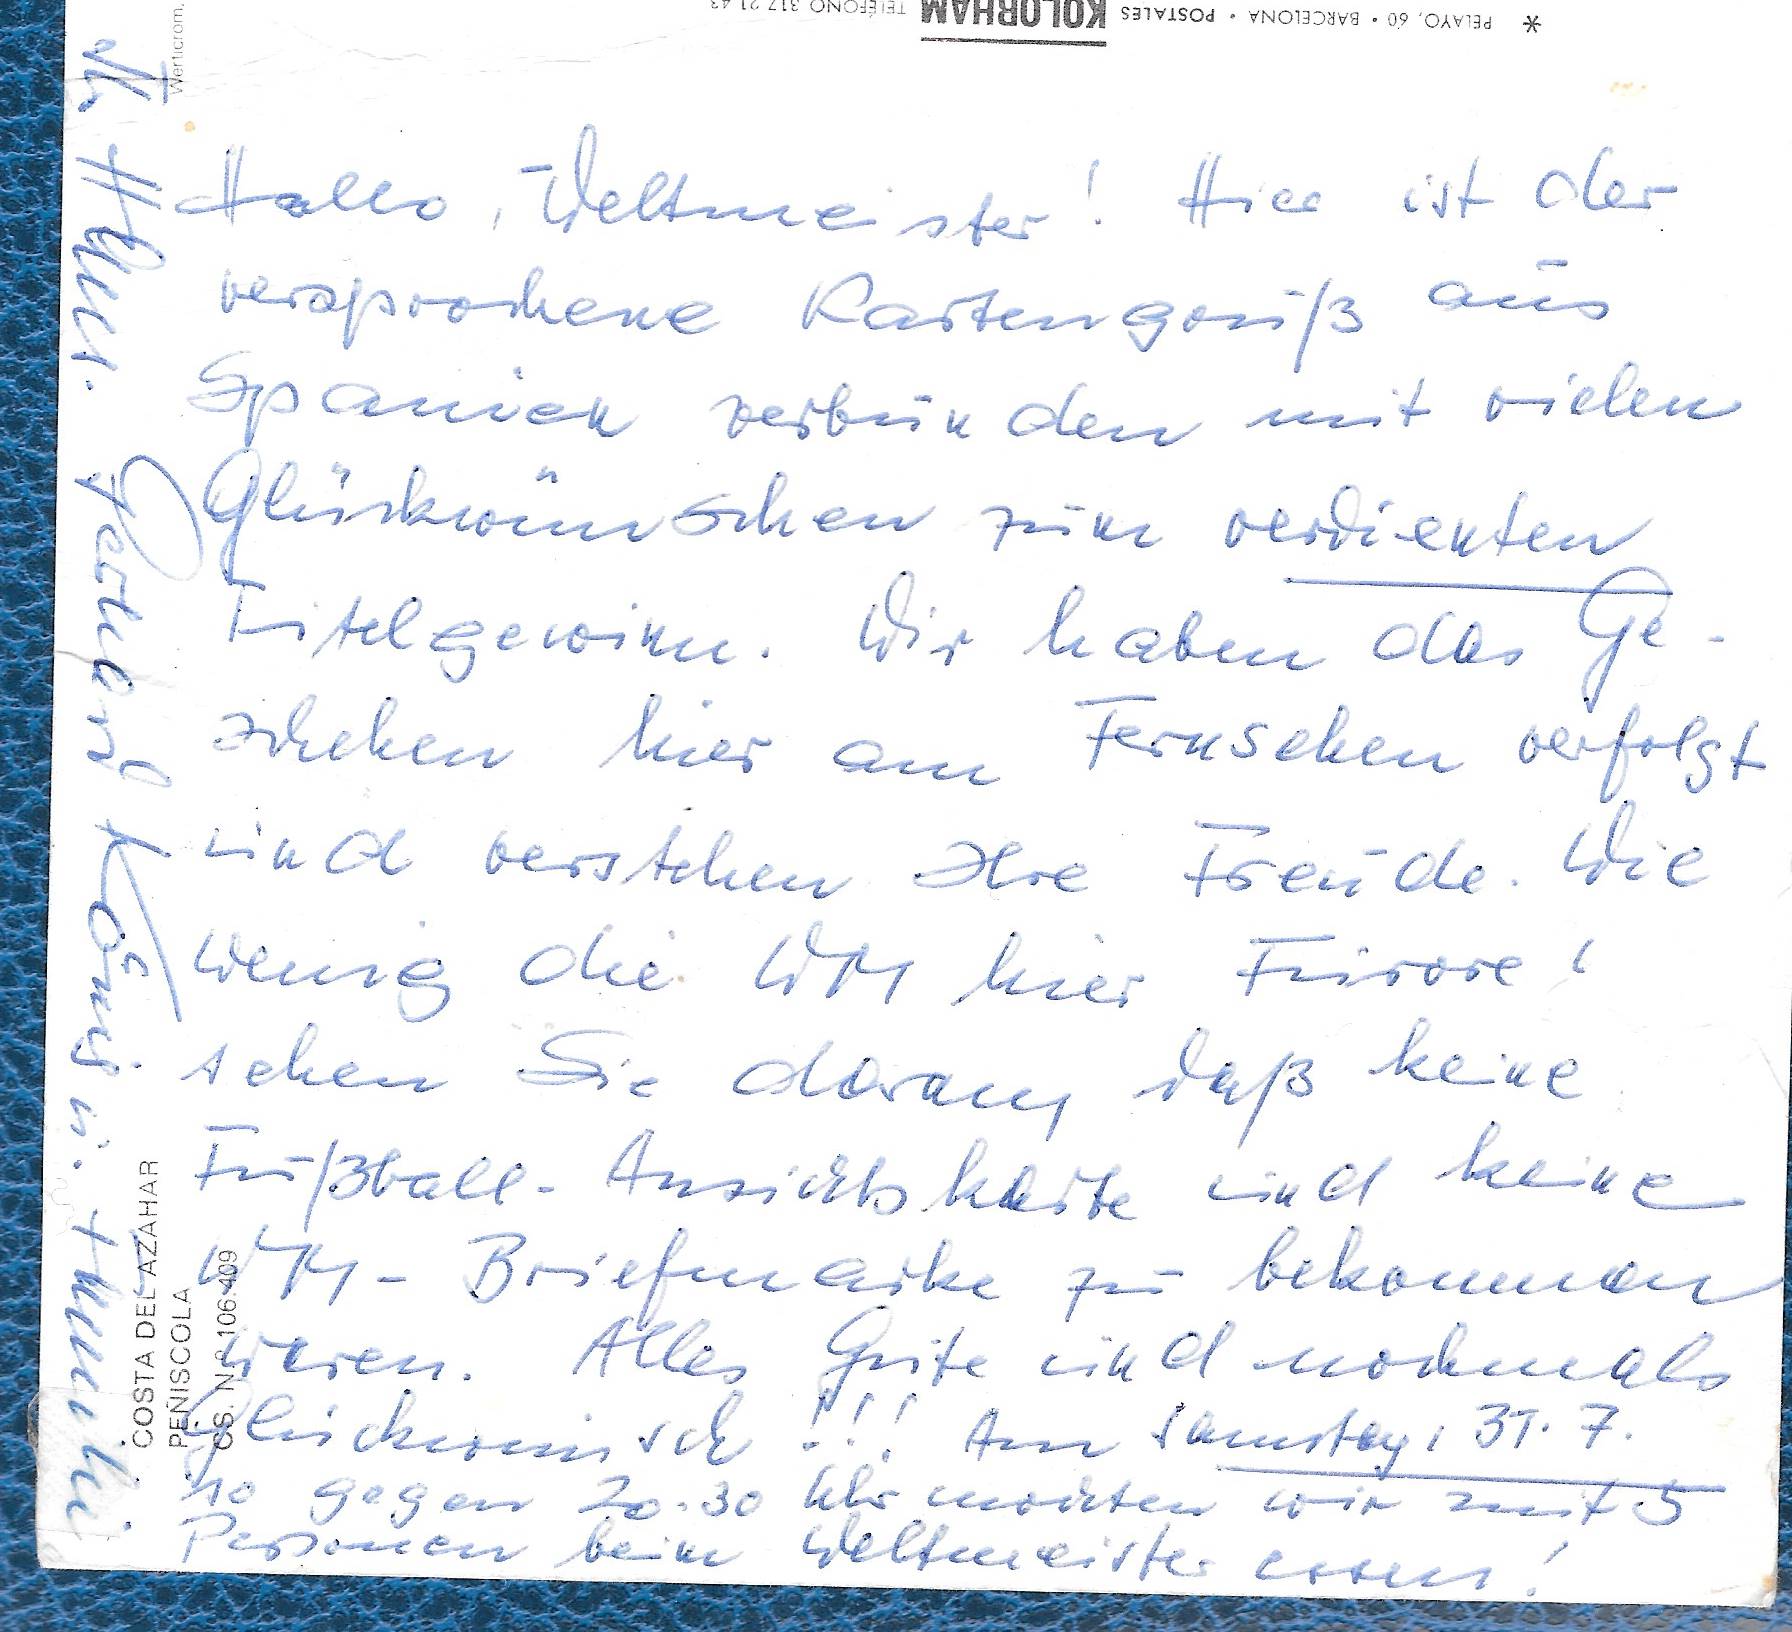 * PELAYO, 60 • BARCELONA • POSTALES KOLORHAM TELÉFONO 317 21 43
Werticrom,
Hallo, Weltmeister! Hier ist der
versprochene Kartengruß aus
Spanien verbunden mit vielen
Glückwünschen zum verdienten
Titelgewinn. Wir haben das Ge-
schehen hier am Fernsehen verfolgt
und verstehen Ihre Freude. Wie
wenig die WM hier Furore!
sehen Sie daran, daß keine
Fußball-Ansichtskarte und keine
WM-Briefmarke zu bekommen
waren. Alles Gute und nochmals
Glückwunsch!!! Am Samstag, 31.7.
so gegen 20.30 Uhr möchten wir mit 5
Personen beim Weltmeister essen!
Gerhard König u.
COSTA DEL AZAHAR
PEÑISCOLA
CS. N.º 106.409